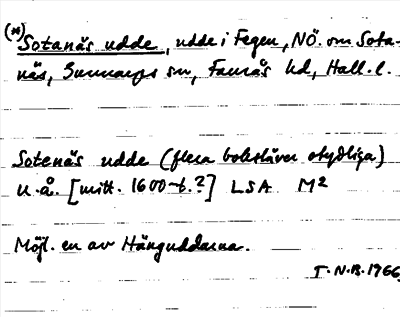 (*) Sotanäs udde, udde i Fegen, NÖ. om Sota-
näs, Gunnarps sn, Faurås hd, Hall. l.
Sotenäs udde (flera bokstäver otydliga)
u. å. [mitt. 1600-t.?] LSA M2
Möjl. en av Hänguddarna.
T.N.B. 1966.